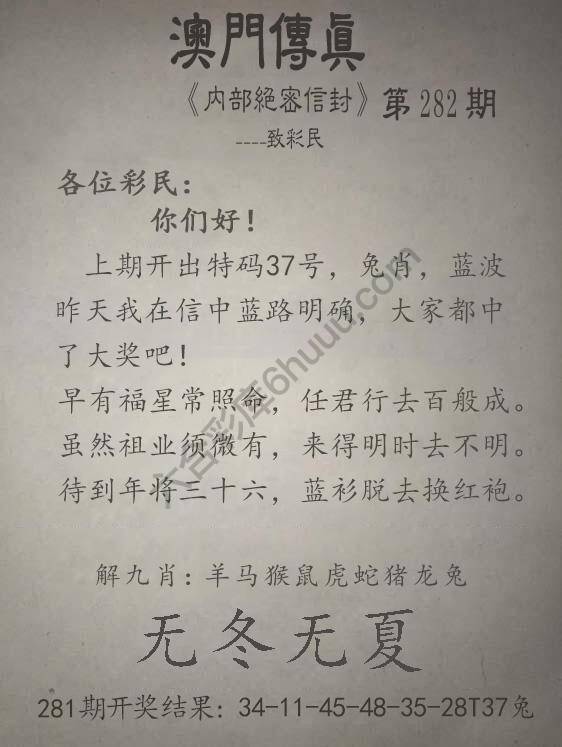 澳門傳眞
《内部絕密信封》第282期
----致彩民
各位彩民：
你们好！
上期开出特码37号，兔肖，蓝波
昨天我在信中蓝路明确，大家都中
了大奖吧！
早有福星常照命，任君行去百般成。
虽然祖业须微有，来得明时去不明。
待到年将三十六，蓝衫脱去换红袍。
解九肖：羊马猴鼠虎蛇猪龙兔
无冬无夏
281期开奖结果：34-11-45-48-35-28T37兔
六合彩库6huuu.com